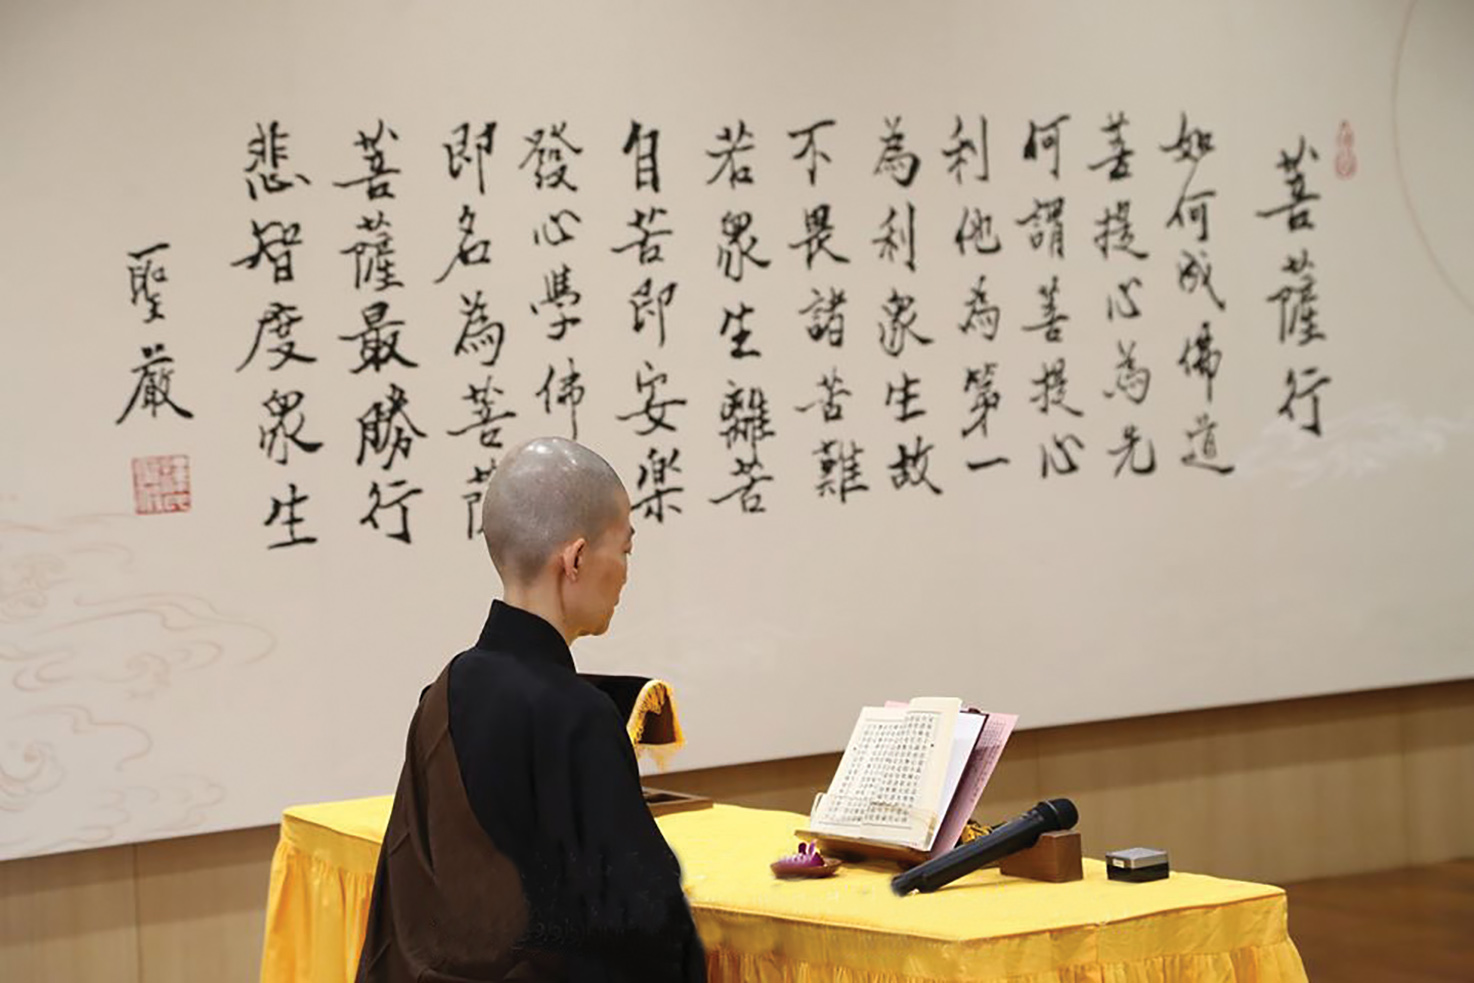 菩薩行
如何成佛道
菩提心為先
何謂菩提心
利他為第一
為利眾生故
不畏諸苦難
若眾生離苦
自苦即安樂
發心學佛
即名為菩薩
菩薩最勝行
悲智度眾生
聖嚴